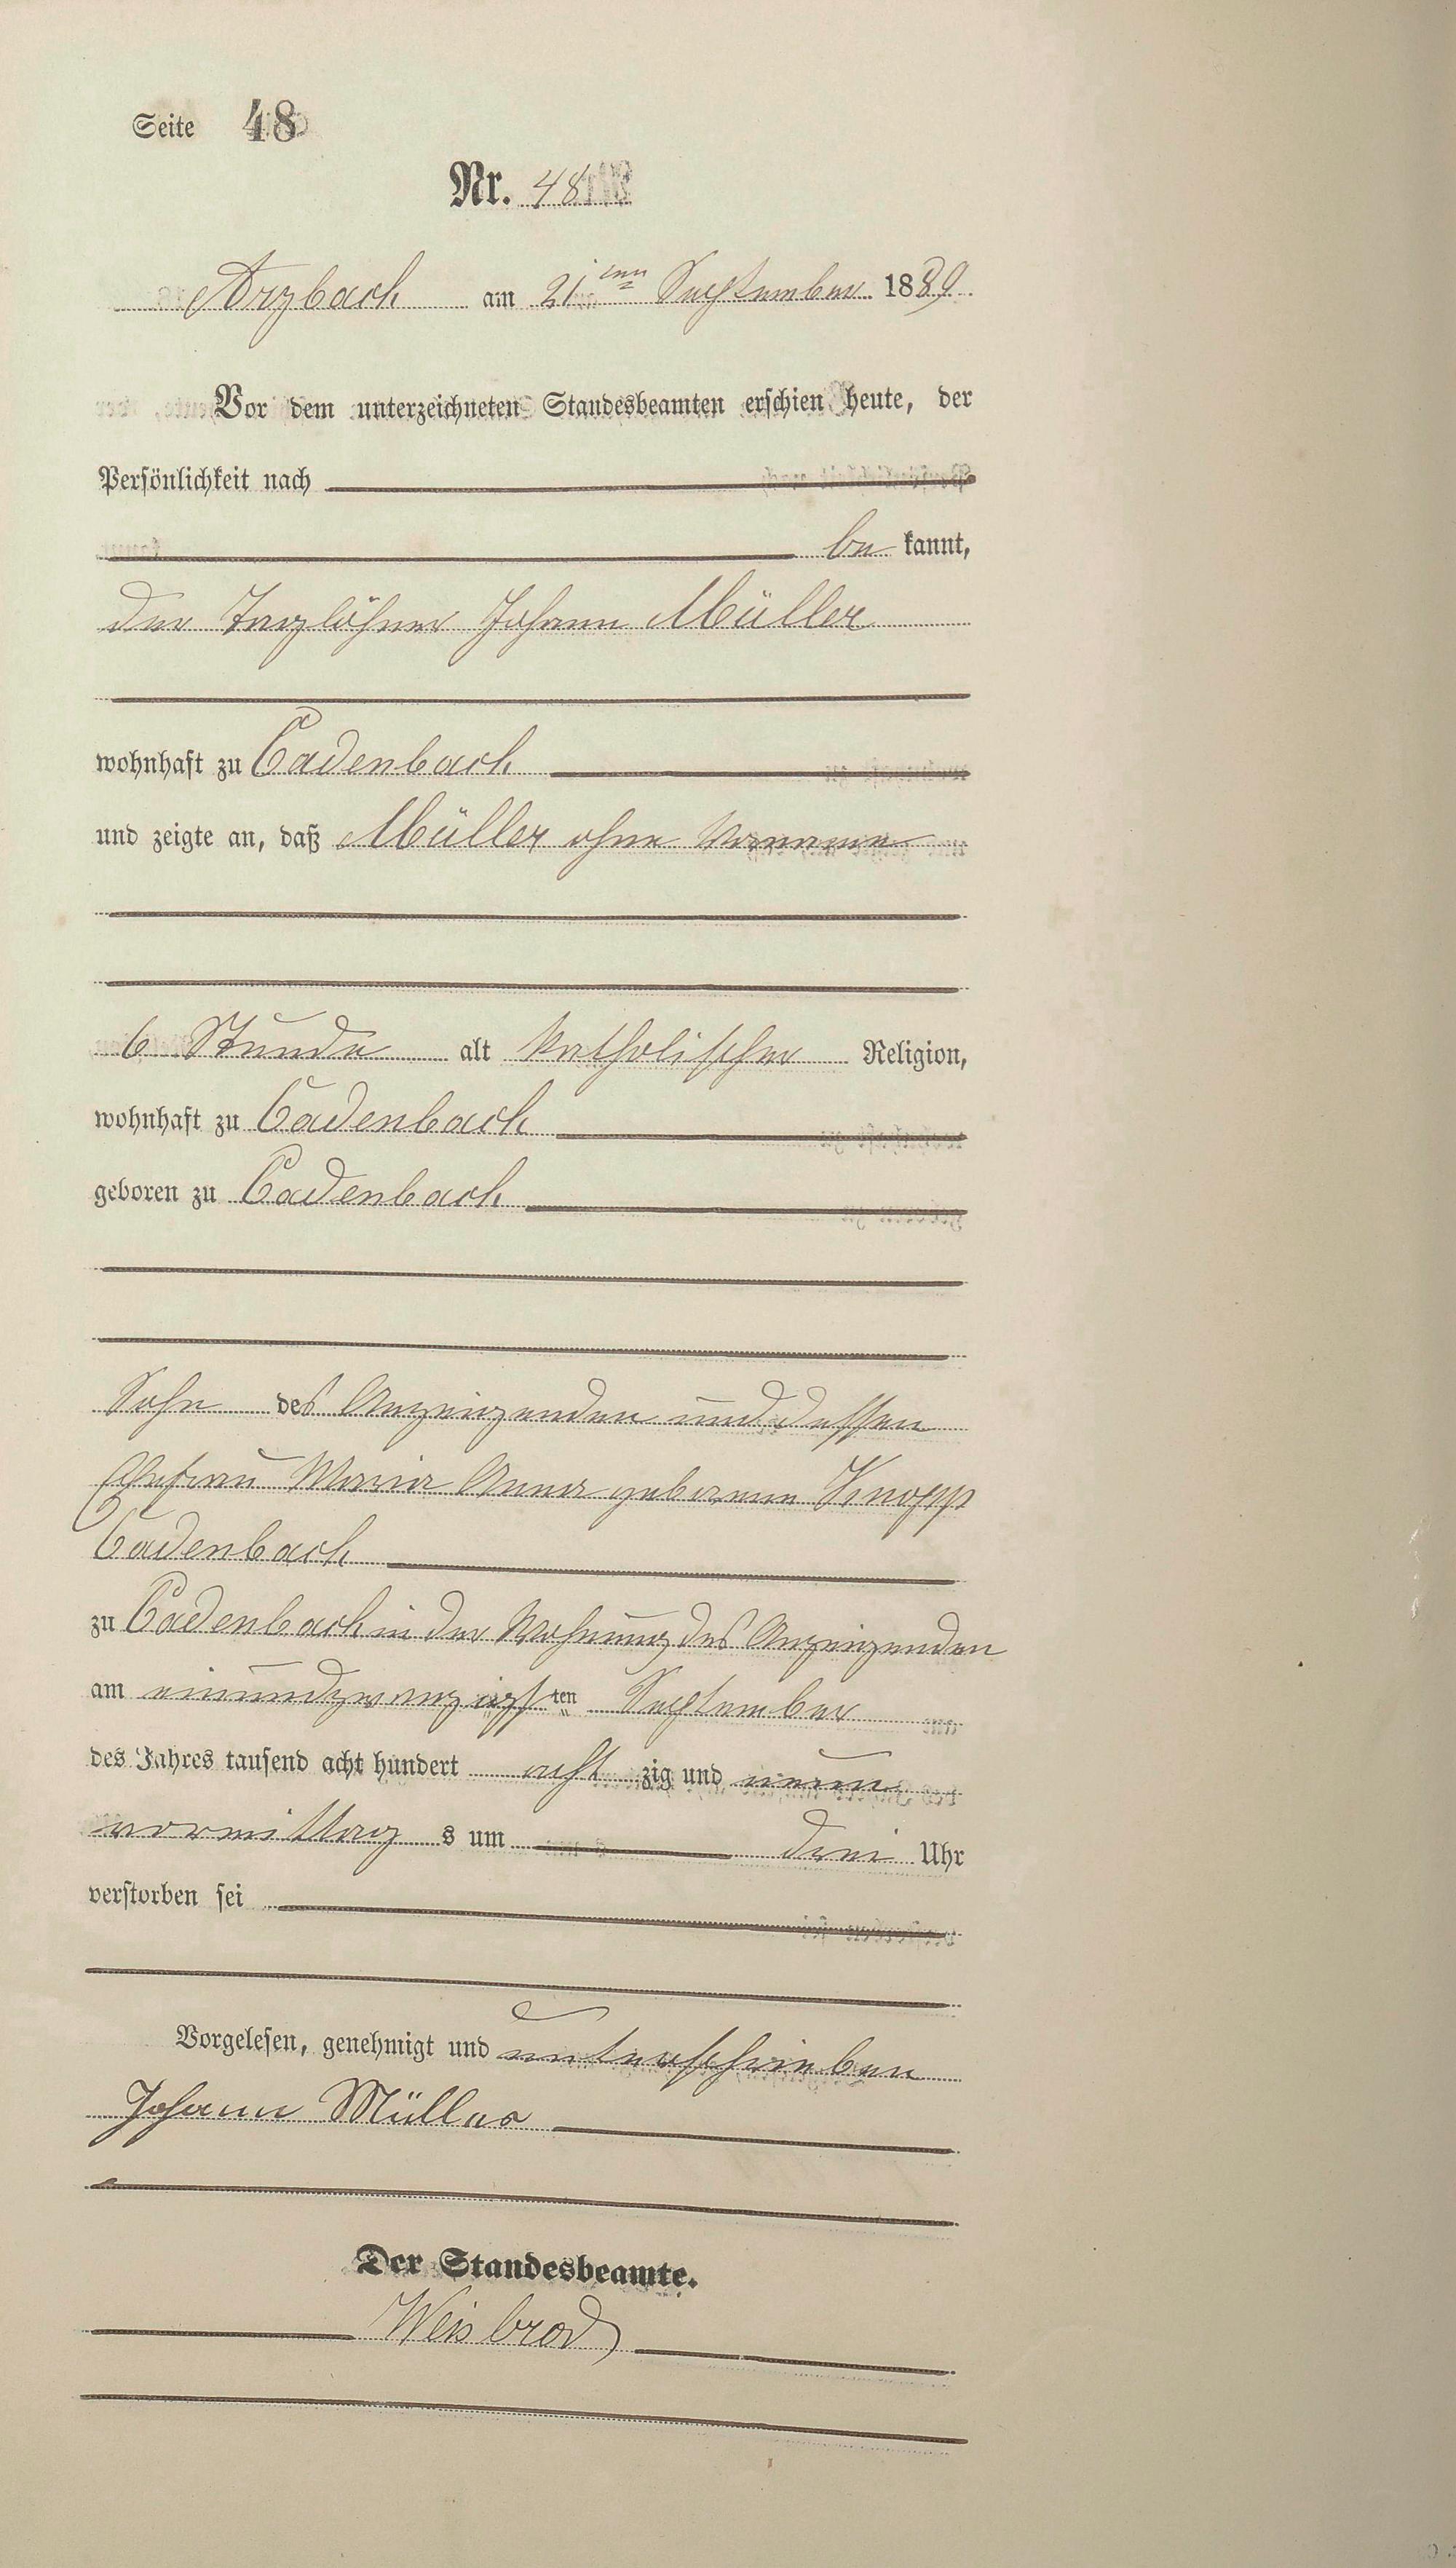 Seite 48
Nr. 48
Arzbach am 21ten September 1889
Vor dem unterzeichneten Standesbeamten erschien heute, der
Persönlichkeit nach
be kannt,
der Taglöhner Johann Müller
wohnhaft zu Cadenbach
und zeigte an, daß Müller ohne Vorname
6 Stunde alt katholischer Religion,
wohnhaft zu Cadenbach
geboren zu Cadenbach
Sohn des Anzeigenden und dessen
Ehefrau Maria Anna geborene Knopp
Cadenbach
zu Cadenbach in der Wohnung des Anzeigenden
am einundzwanzigsten September
des Jahres tausend acht hundert acht zig und neun
vormittag s um drei Uhr
verstorben sei
Vorgelesen, genehmigt und unterschrieben
Johann Müller
Der Standesbeamte.
Weisbrod